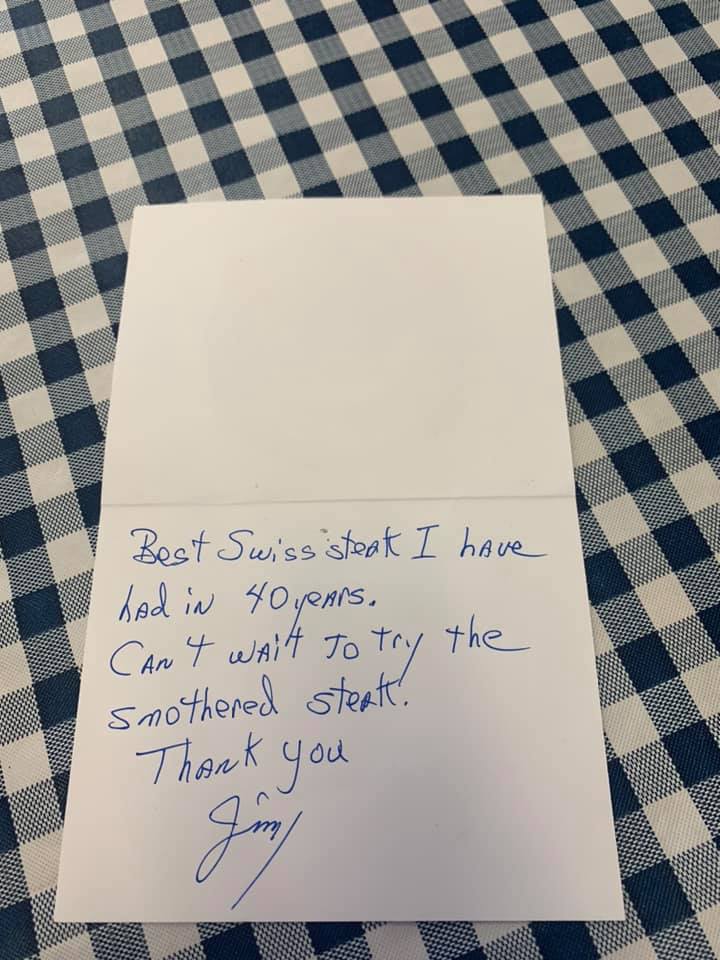 Best Swiss steak I have
had in 40 years.
Can't wait to try the
smothered steak.
Thank you
Jim